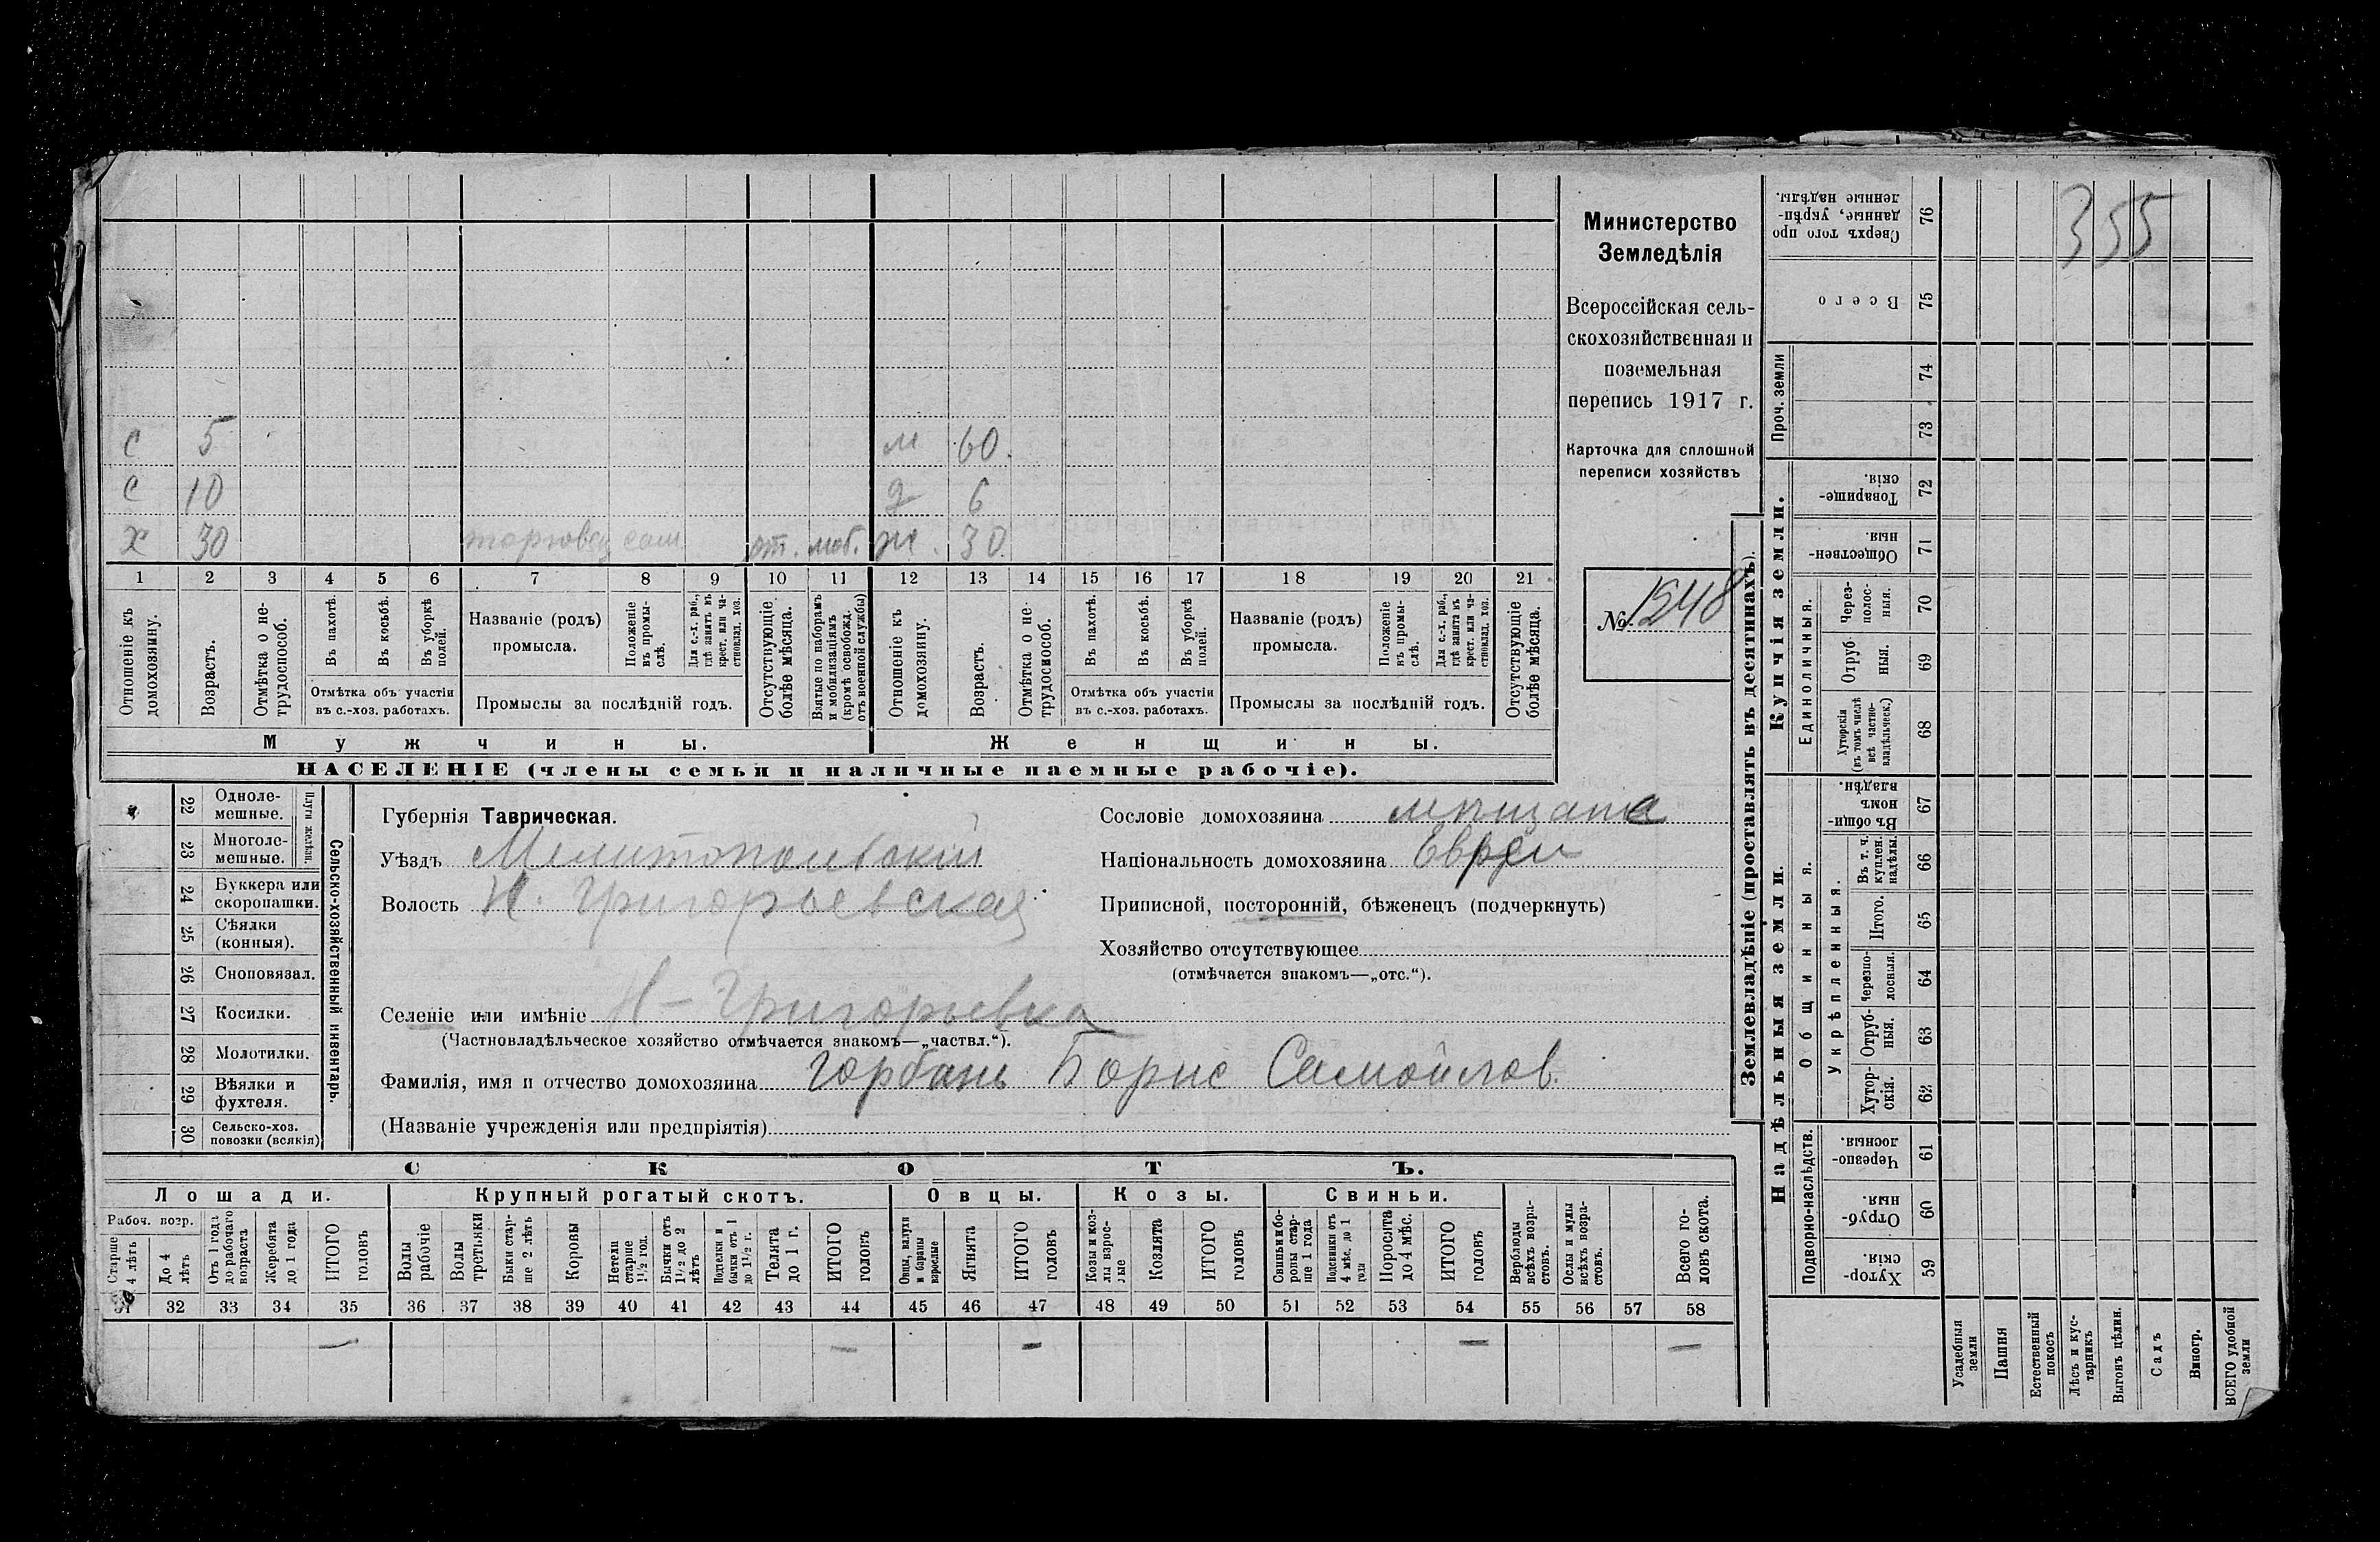 355
Министерство
Земледѣлія
Всероссійская сель-
скохозяйственная и
поземельная
перепись 1917 г.
Карточка для сплошной
переписи хозяйствъ
№ 1548
с 5 м 60
с 10 д 6
х 30 торговец сам от. моб. ж. 30
1 2 3 4 5 6 7 8 9 10 11 12 13 14 15 16 17 18 19 20 21
Отношеніе къ домохозяину.
Возрастъ.
Отмѣтка о не-трудоспособ.
Въ пахотѣ.
Въ косьбѣ.
Въ уборкѣ полей.
Отмѣтка объ участіи
въ с.-хоз. работахъ.
Названіе (родъ)
промысла.
Положеніе въ промы-слѣ.
Для с.-х. раб., гдѣ занятъ въ крест. или ча-стновлад. хоз.
Промыслы за послѣдній годъ.
Отсутствующіе болѣе мѣсяца.
Взятые по наборамъ и мобилизаціямъ (кромѣ освобожд. отъ военной службы)
Отношеніе къ домохозяину.
Возрастъ.
Отмѣтка о не-трудоспособ.
Въ пахотѣ.
Въ косьбѣ.
Въ уборкѣ полей.
Отмѣтка объ участіи
въ с.-хоз. работахъ.
Названіе (родъ)
промысла.
Положеніе въ промы-слѣ.
Для с.-х. раб., гдѣ занята въ крест. или ча-стновлад. хоз.
Промыслы за послѣдній годъ.
Отсутствующіе болѣе мѣсяца.
Мужчины. Женщины.
НАСЕЛЕНІЕ (члены семьи и наличные наемные рабочіе).
22 Одноле-мешные.
23 Многоле-мешные.
Плуги желѣзн.
24 Буккера или скоропашки.
25 Сѣялки (конныя).
26 Сноповязал.
27 Косилки.
28 Молотилки.
29 Вѣялки и фухтеля.
30 Сельско-хоз. повозки (всякія)
Сельско-хозяйственный инвентарь.
Губернія Таврическая.
Уѣздъ Мелитопольскій
Волость Н. Григорьевская
Селеніе или имѣніе Н-Григорьевка
(Частновладѣльческое хозяйство отмѣчается знакомъ—„частвл.“).
Фамилія, имя и отчество домохозяина Горбань Борис Самойлов.
(Названіе учрежденія или предпріятія)
Сословіе домохозяина мѣщане
Національность домохозяина Евреи
Приписной, посторонній, бѣженецъ (подчеркнуть)
Хозяйство отсутствующее
(отмѣчается знакомъ—„отс.“).
СКОТЪ.
Лошади. Крупный рогатый скотъ. Овцы. Козы. Свиньи.
Рабоч. возр.
Старше 4 лѣтъ
До 4 лѣтъ
Отъ 1 года до рабочаго возраста
Жеребята до 1 года
ИТОГО головъ
Волы рабочіе
Волы третьяки
Быки стар-ше 2 лѣтъ
Коровы
Нетели старше 1½ год.
Бычки отъ 1½ до 2 лѣтъ
Подтелки и бычки отъ 1 до 1½ г.
Телята до 1 г.
ИТОГО головъ
Овцы, валухи и бараны взрослые
Ягнята
ИТОГО головъ
Козы и коз-лы взрос-лые
Козлята
ИТОГО головъ
Свиньи и бо-ровы стар-ше 1 года
Подсвинки отъ 4 мѣс. до 1 года
Поросята до 4 мѣс.
ИТОГО головъ
Верблюды всѣхъ возра-стовъ.
Ослы и мулы всѣхъ возра-стовъ.
Всего го-ловъ скота.
31 32 33 34 35 36 37 38 39 40 41 42 43 44 45 46 47 48 49 50 51 52 53 54 55 56 57 58
— — — — —
Землевладѣніе (проставлять въ десятинахъ).
Надѣльныя земли.
Купчія земли.
Проч. земли
Подворно-наслѣдств.
Общинныя.
Укрѣпленныя.
Единоличныя.
Хутор-скія. 59
Отруб-ныя. 60
Черезпо-лосныя. 61
Хутор-скія. 62
Отруб-ныя. 63
Черезпо-лосныя. 64
Итого. 65
Въ т. ч. куплен. надѣлы. 66
Въ общи-номъ владѣн. 67
Хуторскія (въ томъ числѣ всѣ частно-владѣльческ.) 68
Отруб-ныя. 69
Через-полос-ныя. 70
Обществен-ныя. 71
Товарище-скія. 72
73
74
Всего 75
Сверхъ того про-данные, укрѣп-ленные надѣлы. 76
Усадебныя земли
Пашня
Естественный покосъ
Лѣсъ и кус-тарникъ
Выгонъ цѣлин.
Садъ
Виногр.
ВСЕГО удобной земли